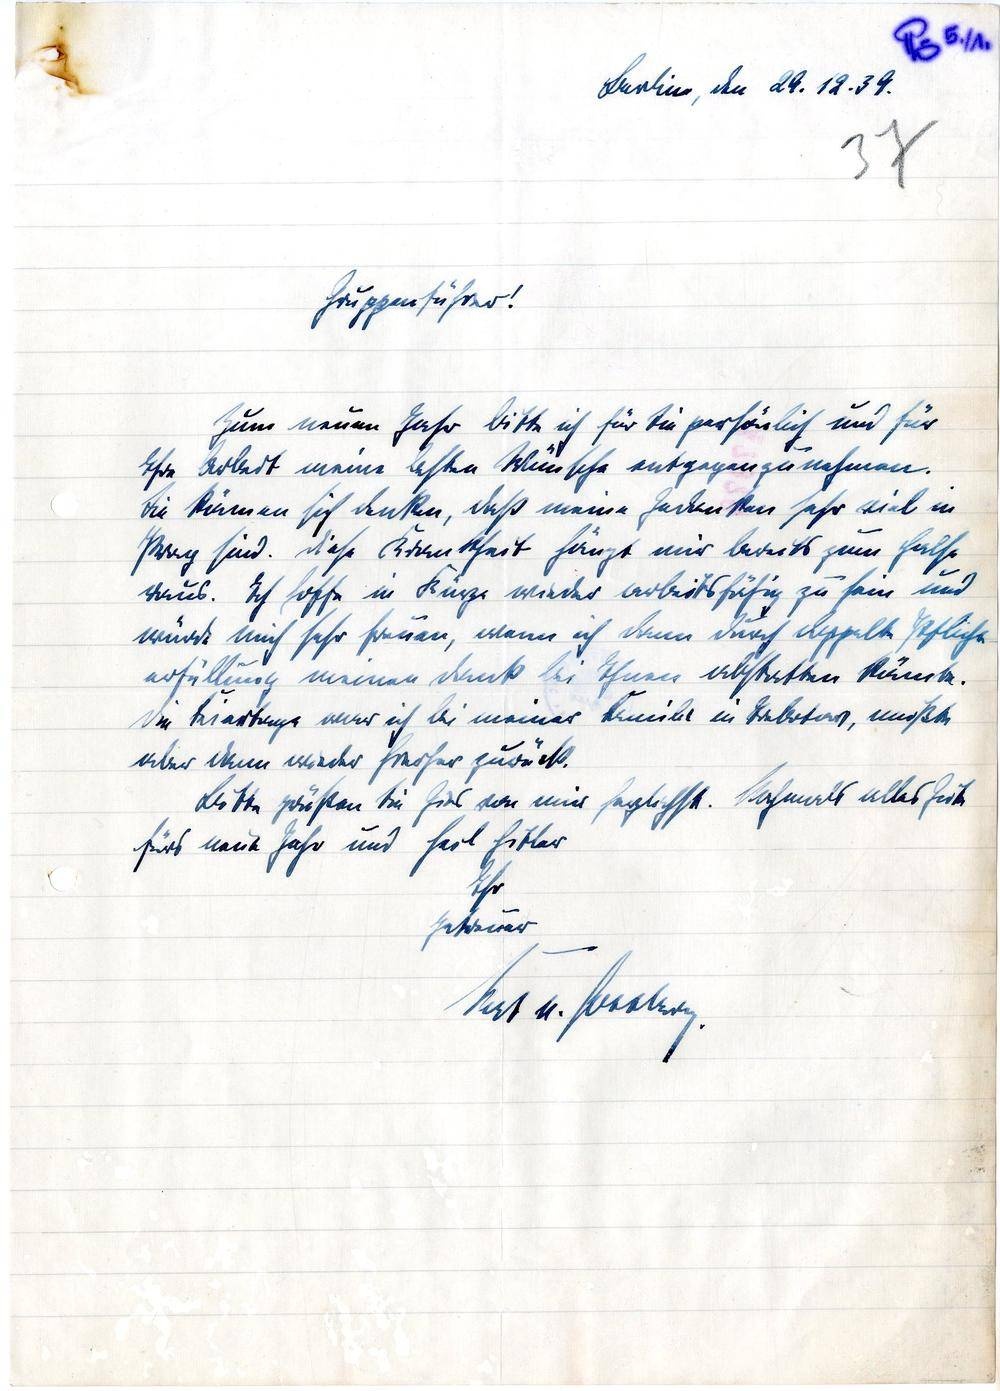 5./1.
Berlin, den 29. 12. 39.
37
Gruppenführer!
Zum neuen Jahr bitte ich für Sie persönlich und für
Ihre Arbeit meine besten Wünsche entgegenzunehmen.
Sie können sich denken, daß meine Gedanken sehr viel in
Prag sind. Diese Krankheit hängt mir bereits zum Halse
raus. Ich hoffe in Kürze wieder arbeitsfähig zu sein und
würde mich sehr freuen, wenn ich dann durch doppelte Pflicht-
erfüllung meinen Dank bei Ihnen abstatten könnte.
Die Feiertage war ich bei meiner Familie in, mußte
aber dann wieder hierher zurück.
Bitte grüßen Sie von mir herzlichst. Nochmals alles Gute
fürs neue Jahr und Heil Hitler
Ihr
getreuer